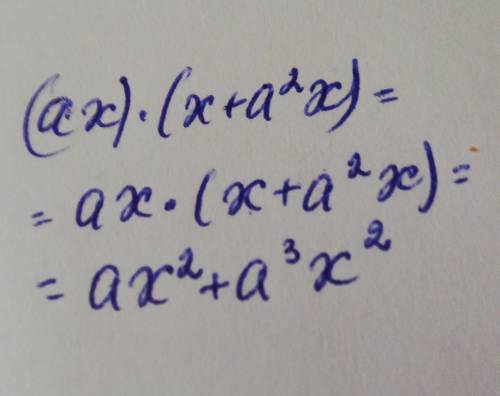 (ax)·(x+a²x)=
=ax·(x+a²x)=
=ax²+a³x²